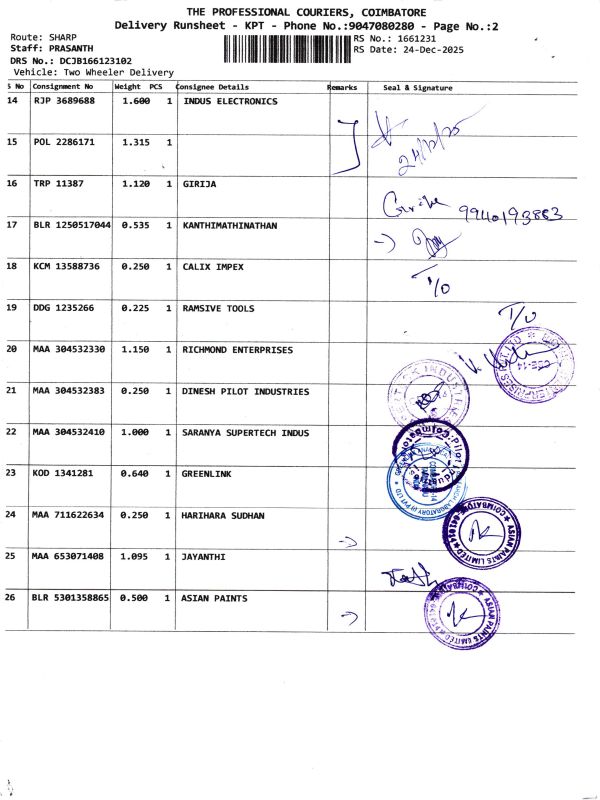 THE PROFESSIONAL COURIERS, COIMBATORE
Delivery Runsheet - KPT - Phone No.:9047080280 - Page No.:2
Route: SHARP
Staff: PRASANTH
RS No.: 1661231
RS Date: 24-Dec-2025
DRS No.: DCJB166123102
Vehicle: Two Wheeler Delivery
S No Consignment No Weight PCS Consignee Details Remarks Seal & Signature
14 RJP 3689688 1.600 1 INDUS ELECTRONICS
15 POL 2286171 1.315 1
24/12/25
16 TRP 11387 1.120 1 GIRIJA
9940193883
17 BLR 1250517044 0.535 1 KANTHIMATHINATHAN
18 KCM 13588736 0.250 1 CALIX IMPEX
T/O
19 DDG 1235266 0.225 1 RAMSIVE TOOLS
T/O
20 MAA 304532330 1.150 1 RICHMOND ENTERPRISES
21 MAA 304532383 0.250 1 DINESH PILOT INDUSTRIES
22 MAA 304532410 1.000 1 SARANYA SUPERTECH INDUS
23 KOD 1341281 0.640 1 GREENLINK
24 MAA 711622634 0.250 1 HARIHARA SUDHAN
ASIAN PAINTS LIMITED
25 MAA 653071408 1.095 1 JAYANTHI
26 BLR 5301358865 0.500 1 ASIAN PAINTS
ASIAN PAINTS LIMITED